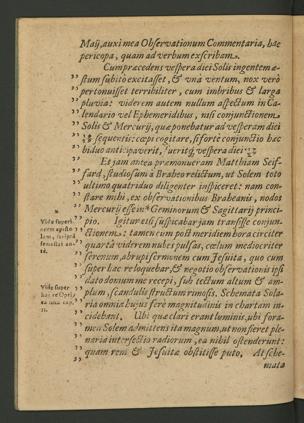 Maij, auxi mea Observationum Commentaria, hac
pericopa, quam ad verbum exscribam.
Cum præcedens vespera diei Solis ingentem æ-
stum subitò excitasset, & unà ventum, nox verò
pertonuisset terribiliter, cum imbribus & larga
pluvia: viderem autem nullum aspectum in Ca-
lendario vel Ephemeridibus, nisi conjunctionem
Solis & Mercurij, quæ ponebatur ad vesperam diei
sequentis: cæpi cogitare, si fortè conjunctio hæc
biduo anticipaverit,
Et jam antea præmonueram Matthiam Seif-
fard, studiosum à Braheo relictum, ut Solem toto
ultimo quatriduo diligenter inspiceret: nam con-
stare mihi, ex observationibus Braheanis, nodos
Mercurij esse in Geminorum & Sagittarij princi-
pio. Igitur etsi suspicabar jam transisse conjun-
ctionem: tamen cum post meridiem hora circiter
quarta viderem nubes pulsas, cœlum mediocriter
serenum, abrupi sermonem cum Jesuita, quo cum
super hac re loquebar, & negotio observationis ipsi
dato domum me recepi, sub tectum altum & am-
plum, scandulis structum rimosis. Schemata Sola-
ria omnia hujus ferè magnitudinis in chartam in-
cidebant. Ubi quæ clari erant luminis, ubi fora-
men Solem admittens ita magnum, ut non fieret ple-
naria intersectio radiorum, ea nihil ostenderunt:
quam rem & Jesuitæ obstitisse puto. At sche-
mata
Vide superi-
orem episto-
lam,
Vide super
hac re Optic